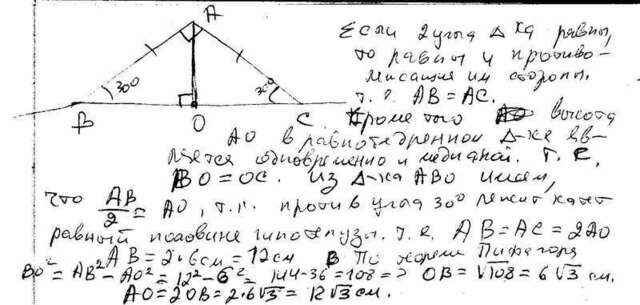 A
30°
30°
B
O
C
Если 2 угла Δ-ка равны,
то равны и противо-
лежащие им стороны,
т.е. AB = AC.
Кроме того высота
AO в равнобедренном Δ-ке яв-
ляется одновременно и медианой. Т.е.
BO = OC. Из Δ-ка ABO имеем,
что AB/2 = AO, т.к. против угла 30° лежит катет
равный половине гипотенузы. т.е. AB = AC = 2AO
AB = 2·6см = 12см По теореме Пифагора
BO² = AB² - AO² = 12² - 6² = 144-36 = 108 => OB = √108 = 6√3 см.
AO = 2OB = 2·6√3 = 12√3 см.